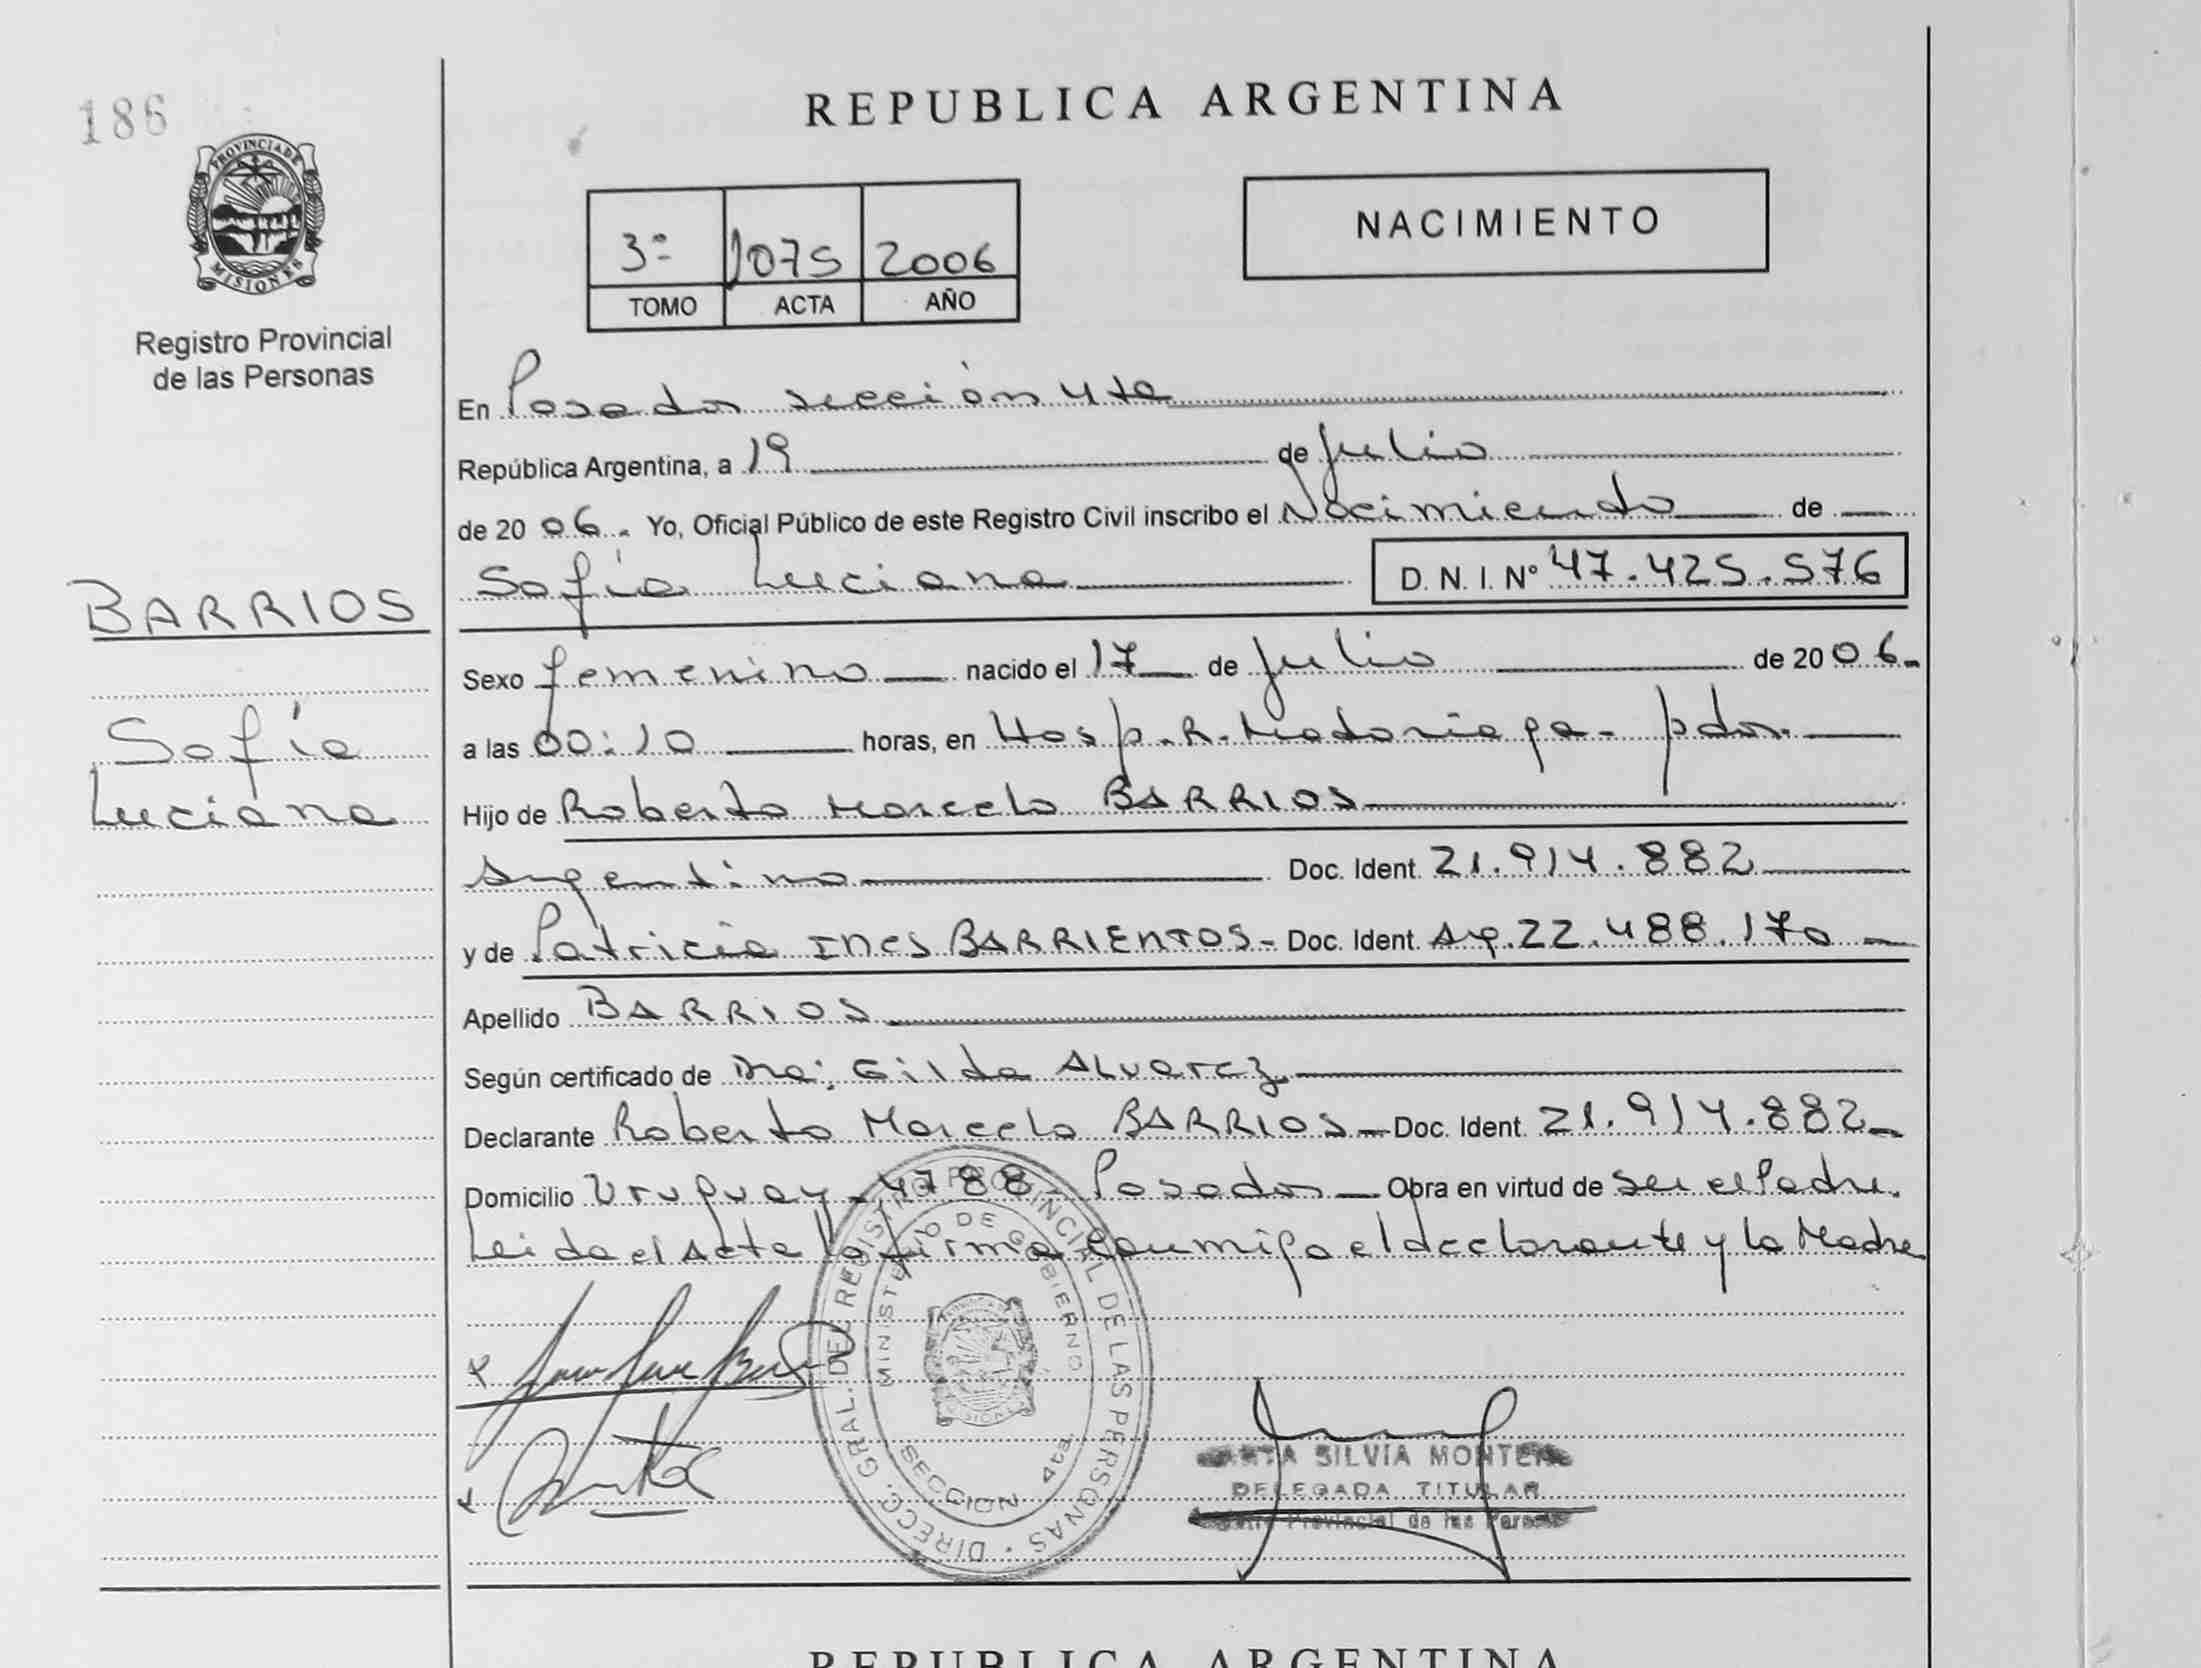 186
PROVINCIA DE
MISIONES
Registro Provincial
de las Personas
REPUBLICA ARGENTINA
3º 1075 2006
TOMO ACTA AÑO
NACIMIENTO
En Posadas sección 4ta
República Argentina, a 19 de Julio
de 2006. Yo, Oficial Público de este Registro Civil inscribo el Nacimiento de
Sofía Luciana D. N. I. Nº 47.425.576
BARRIOS
Sofía
Luciana
Sexo femenino nacido el 17 de Julio de 2006.
a las 00:10 horas, en Hosp. R. Madariaga - pdas.
Hijo de Roberto Marcelo BARRIOS
Argentino Doc. Ident. 21.914.882
y de Patricia INES BARRIENTOS - Doc. Ident. Arg. 22.488.170
Apellido BARRIOS
Según certificado de Dra: Gilda Alvarez
Declarante Roberto Marcelo BARRIOS - Doc. Ident. 21.914.882
Domicilio Uruguay - 4788 - Posadas - Obra en virtud de ser el Padre.
Leida el Acta la firma conmigo el declarante y la Madre
DIRECC. GRAL. DEL REGISTRO PROVINCIAL DE LAS PERSONAS
MINISTERIO DE GOBIERNO
SECCION 4ta.
SILVIA
DELEGADA TITULAR
Provincial de las
REPUBLICA ARGENTINA